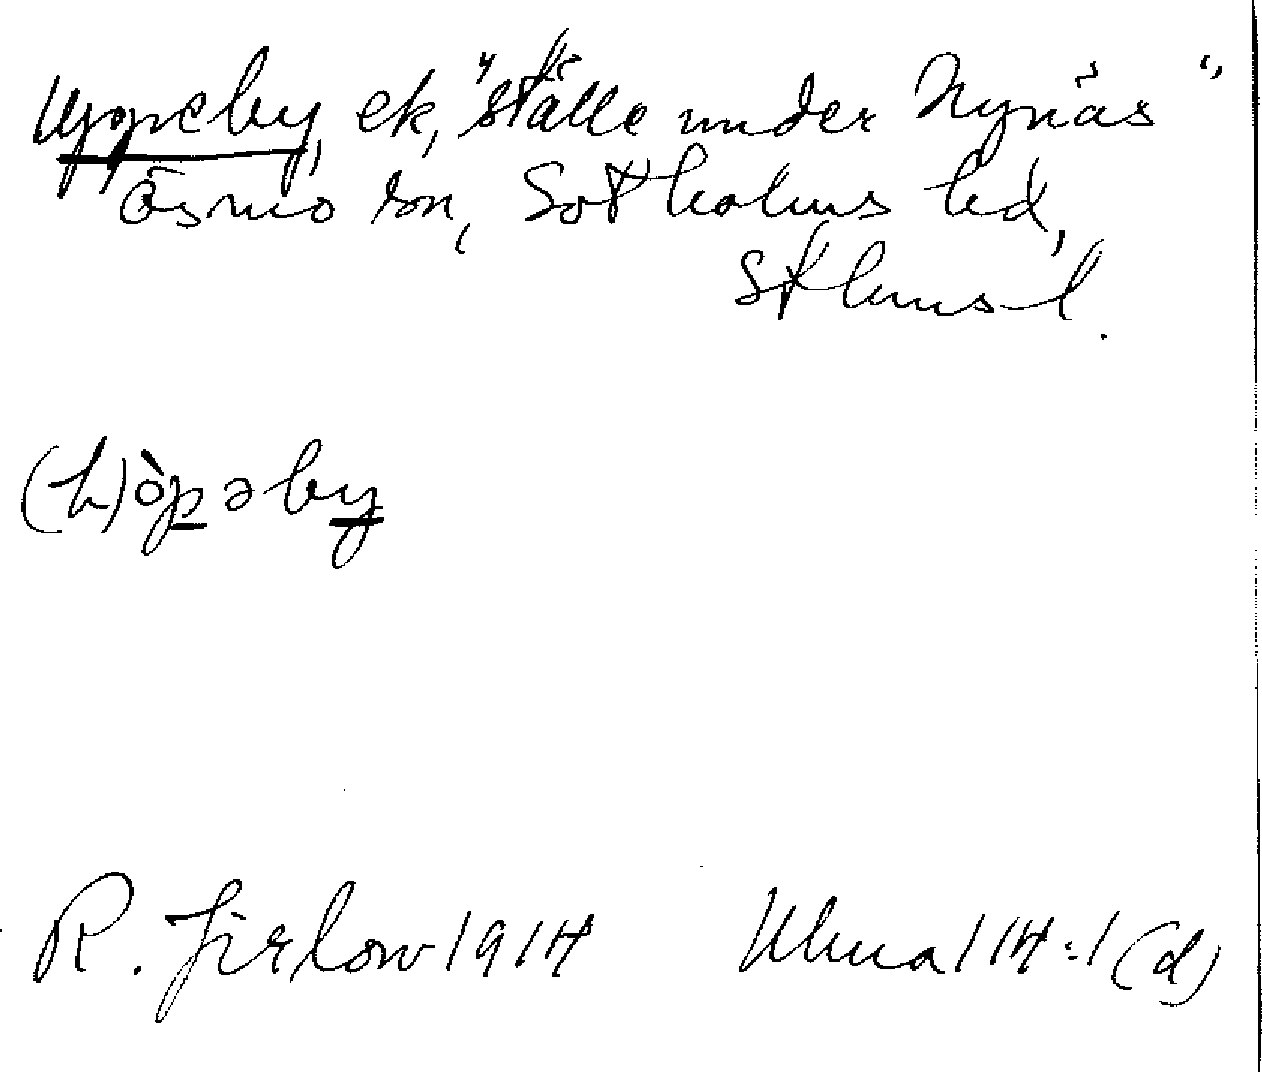 Uppeby, ek, "ställe under Nynäs"
Ösmo sn, Sotholms hd,
Sthlms l.
(h)òpəby
R. Jirlow 1914
Ulma 114:1 (d)